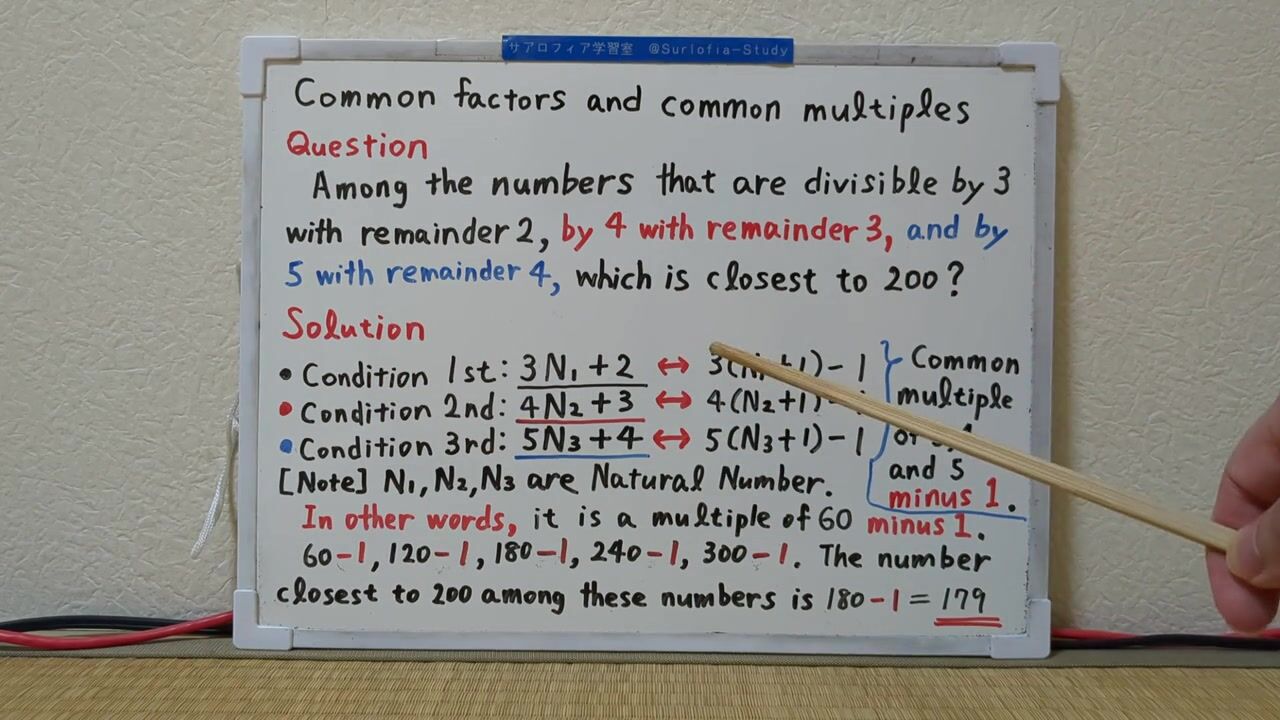 サアロフィア学習室 @Surlofia-Study
Common factors and common multiples
Question
Among the numbers that are divisible by 3
with remainder 2, by 4 with remainder 3, and by
5 with remainder 4, which is closest to 200?
Solution
• Condition 1st: 3N₁+2 ⇔ 3(N₁+1)-1
• Condition 2nd: 4N₂+3 ⇔ 4(N₂+1)-
• Condition 3rd: 5N₃+4 ⇔ 5(N₃+1)-1
Common
multiple
of
and 5
minus 1.
[Note] N₁,N₂,N₃ are Natural Number.
In other words, it is a multiple of 60 minus 1.
60-1, 120-1, 180-1, 240-1, 300-1. The number
closest to 200 among these numbers is 180-1=179